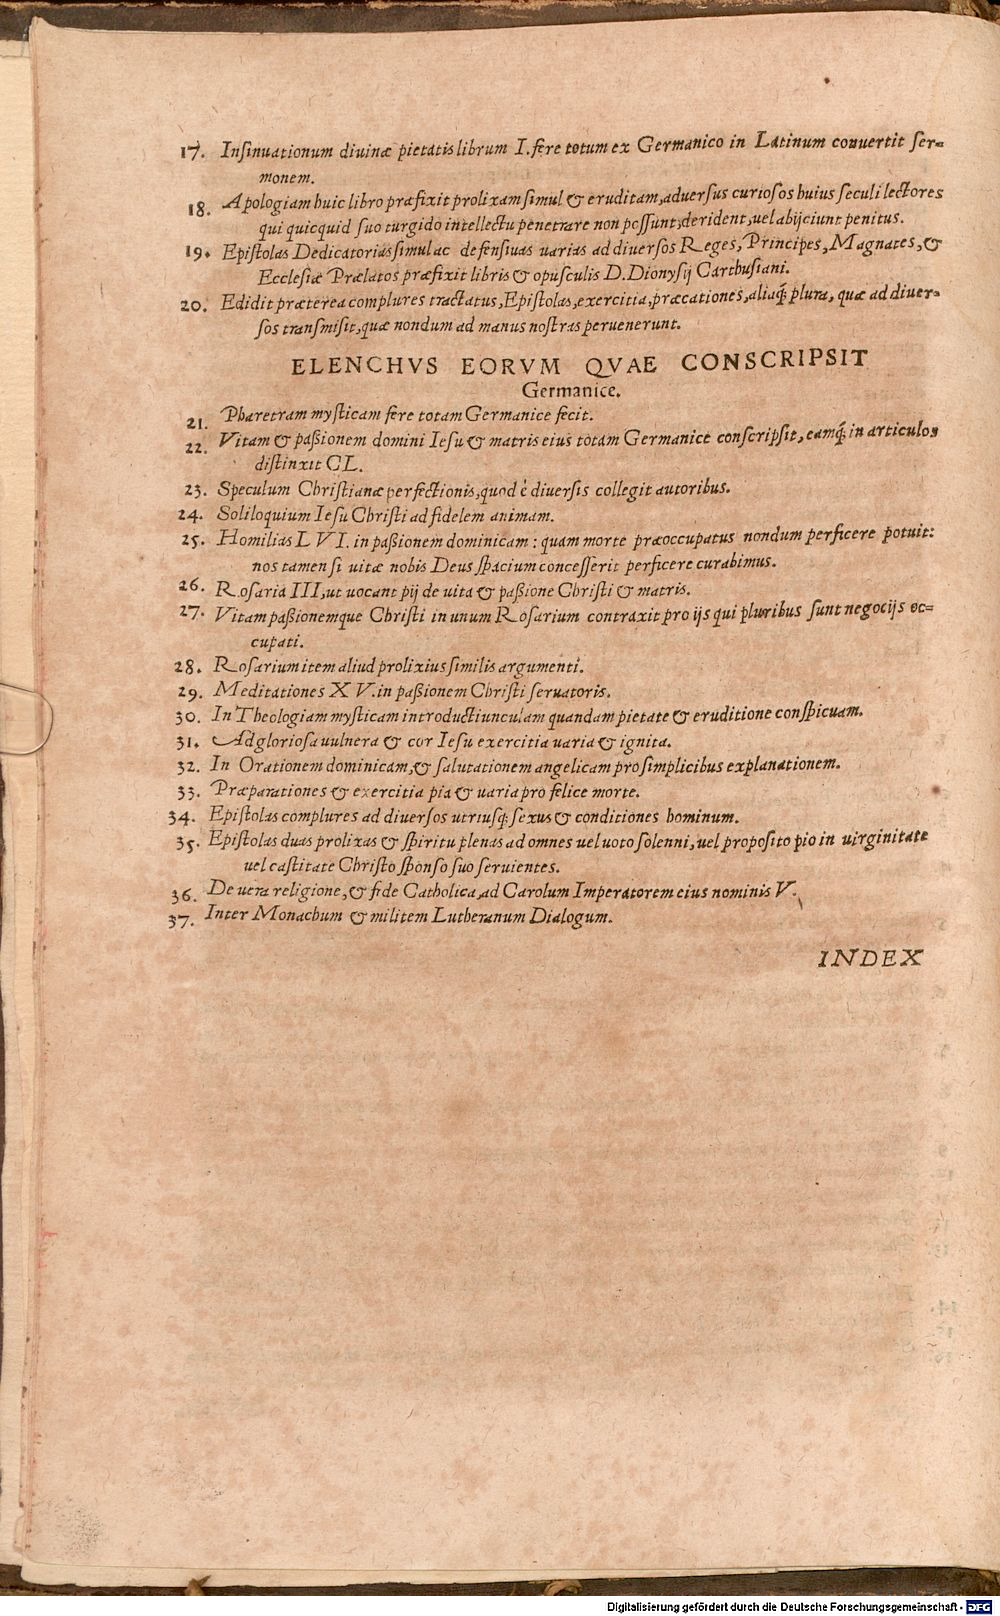 17. Insinuationum diuinæ pietatis librum I. fere totum ex Germanico in Latinum conuertit ser-
monem.
18. Apologiam huic libro præfixit prolixam simul & eruditam, aduersus curiosos huius seculi lectores
qui quicquid suo turgido intellectu penetrare non possunt, derident, uel abijciunt penitus.
19. Epistolas Dedicatorias simul ac defensiuas uarias ad diuersos Reges, Principes, Magnates, &
Ecclesiæ Prælatos præfixit libris & opusculis D. Dionysij Carthusiani.
20. Edidit præterea complures tractatus, Epistolas, exercitia, præcationes, aliaq; plura, quæ ad diuer-
sos transmisit, quæ nondum ad manus nostras peruenerunt.
ELENCHVS EORVM QVAE CONSCRIPSIT
Germanice.
21. Pharetram mysticam fere totam Germanice fecit.
22. Vitam & paßionem domini Iesu & matris eius totam Germanice conscripsit, eamq; in articulos
distinxit CL.
23. Speculum Christianæ perfectionis, quod è diuersis collegit autoribus.
24. Soliloquium Iesu Christi ad fidelem animam.
25. Homilias LVI. in paßionem dominicam: quam morte præoccupatus nondum perficere potuit:
nos tamen si uitæ nobis Deus spacium concesserit perficere curabimus.
26. Rosaria III, ut uocant pij de uita & paßione Christi & matris.
27. Vitam paßionemque Christi in unum Rosarium contraxit pro ijs qui pluribus sunt negocijs oc-
cupati.
28. Rosarium item aliud prolixius similis argumenti.
29. Meditationes XV. in paßionem Christi seruatoris.
30. In Theologiam mysticam introductiunculam quandam pietate & eruditione conspicuam.
31. Ad gloriosa uulnera & cor Iesu exercitia uaria & ignita.
32. In Orationem dominicam, & salutationem angelicam pro simplicibus explanationem.
33. Præparationes & exercitia pia & uaria pro felice morte.
34. Epistolas complures ad diuersos utriusq; sexus & conditiones hominum.
35. Epistolas duas prolixas & spiritu plenas ad omnes uel uoto solenni, uel proposito pio in uirginitate
uel castitate Christo sponso suo seruientes.
36. De uera religione, & fide Catholica, ad Carolum Imperatorem eius nominis V.
37. Inter Monachum & militem Lutheranum Dialogum.
INDEX
Digitalisierung gefördert durch die Deutsche Forschungsgemeinschaft - DFG